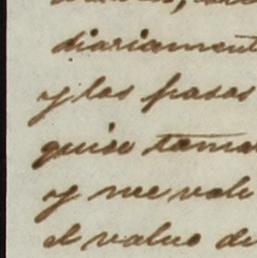 diariament
y los pasos
quise tomar
y me vale
el valor de